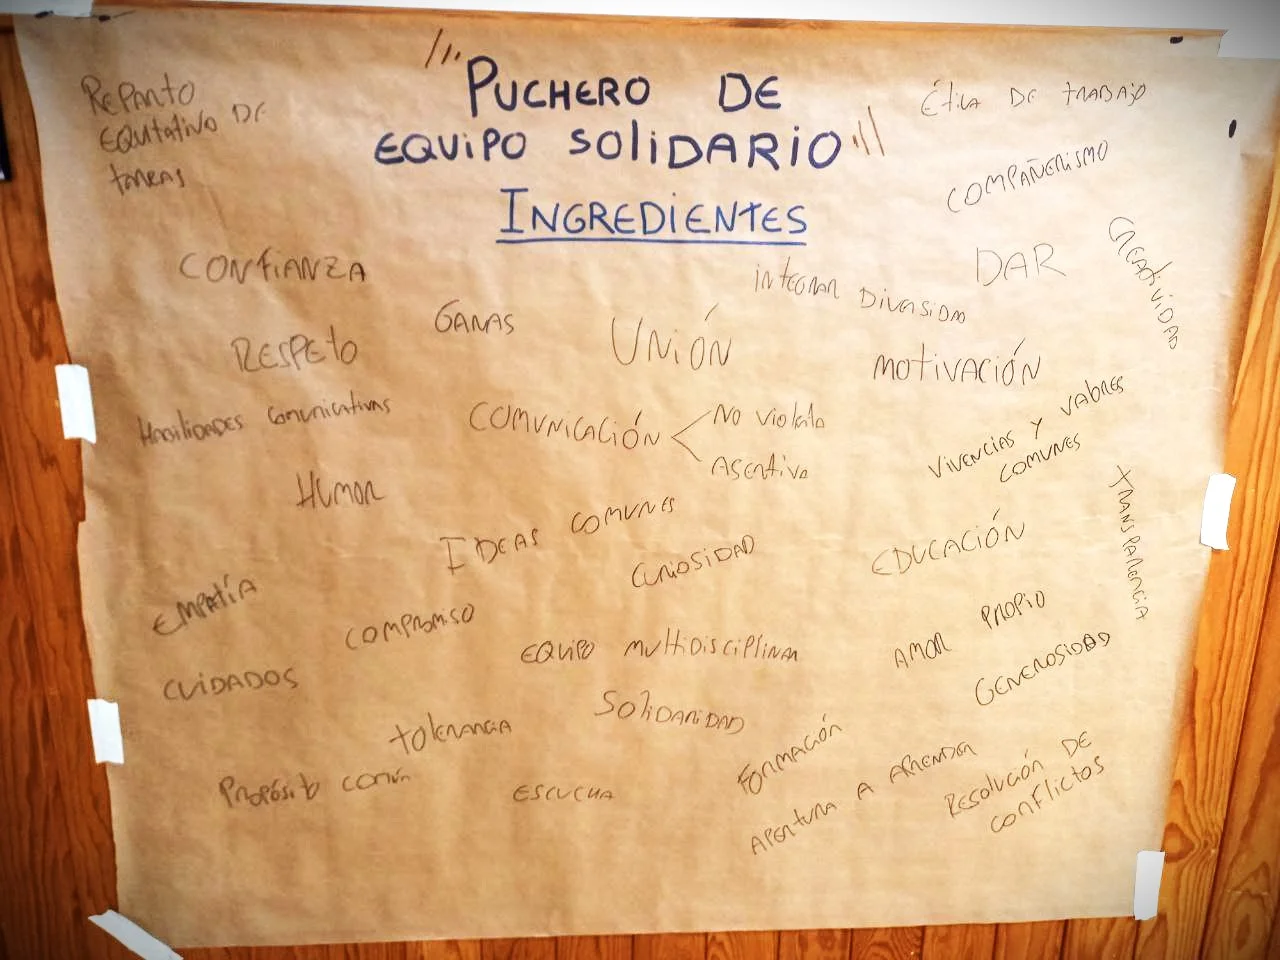 PUCHERO DE
EQUIPO SOLIDARIO
INGREDIENTES
REPARTO
EQUITATIVO DE
TAREAS
ÉTICA DE TRABAJO
COMPAÑERISMO
CREATIVIDAD
CONFIANZA
GANAS
UNIÓN
INTEGRAR DIVERSIDAD
DAR
RESPETO
MOTIVACIÓN
HABILIDADES COMUNICATIVAS
COMUNICACIÓN
NO VIOLENTA
ASERTIVA
VIVENCIAS Y VALORES
COMUNES
HUMOR
IDEAS COMUNES
CURIOSIDAD
EDUCACIÓN
TRANSPARENCIA
EMPATÍA
COMPROMISO
EQUIPO MULTIDISCIPLINAR
AMOR PROPIO
GENEROSIDAD
CUIDADOS
TOLERANCIA
SOLIDARIDAD
FORMACIÓN
PROPÓSITO COMÚN
ESCUCHA
APERTURA A APRENDER
RESOLUCIÓN DE
CONFLICTOS